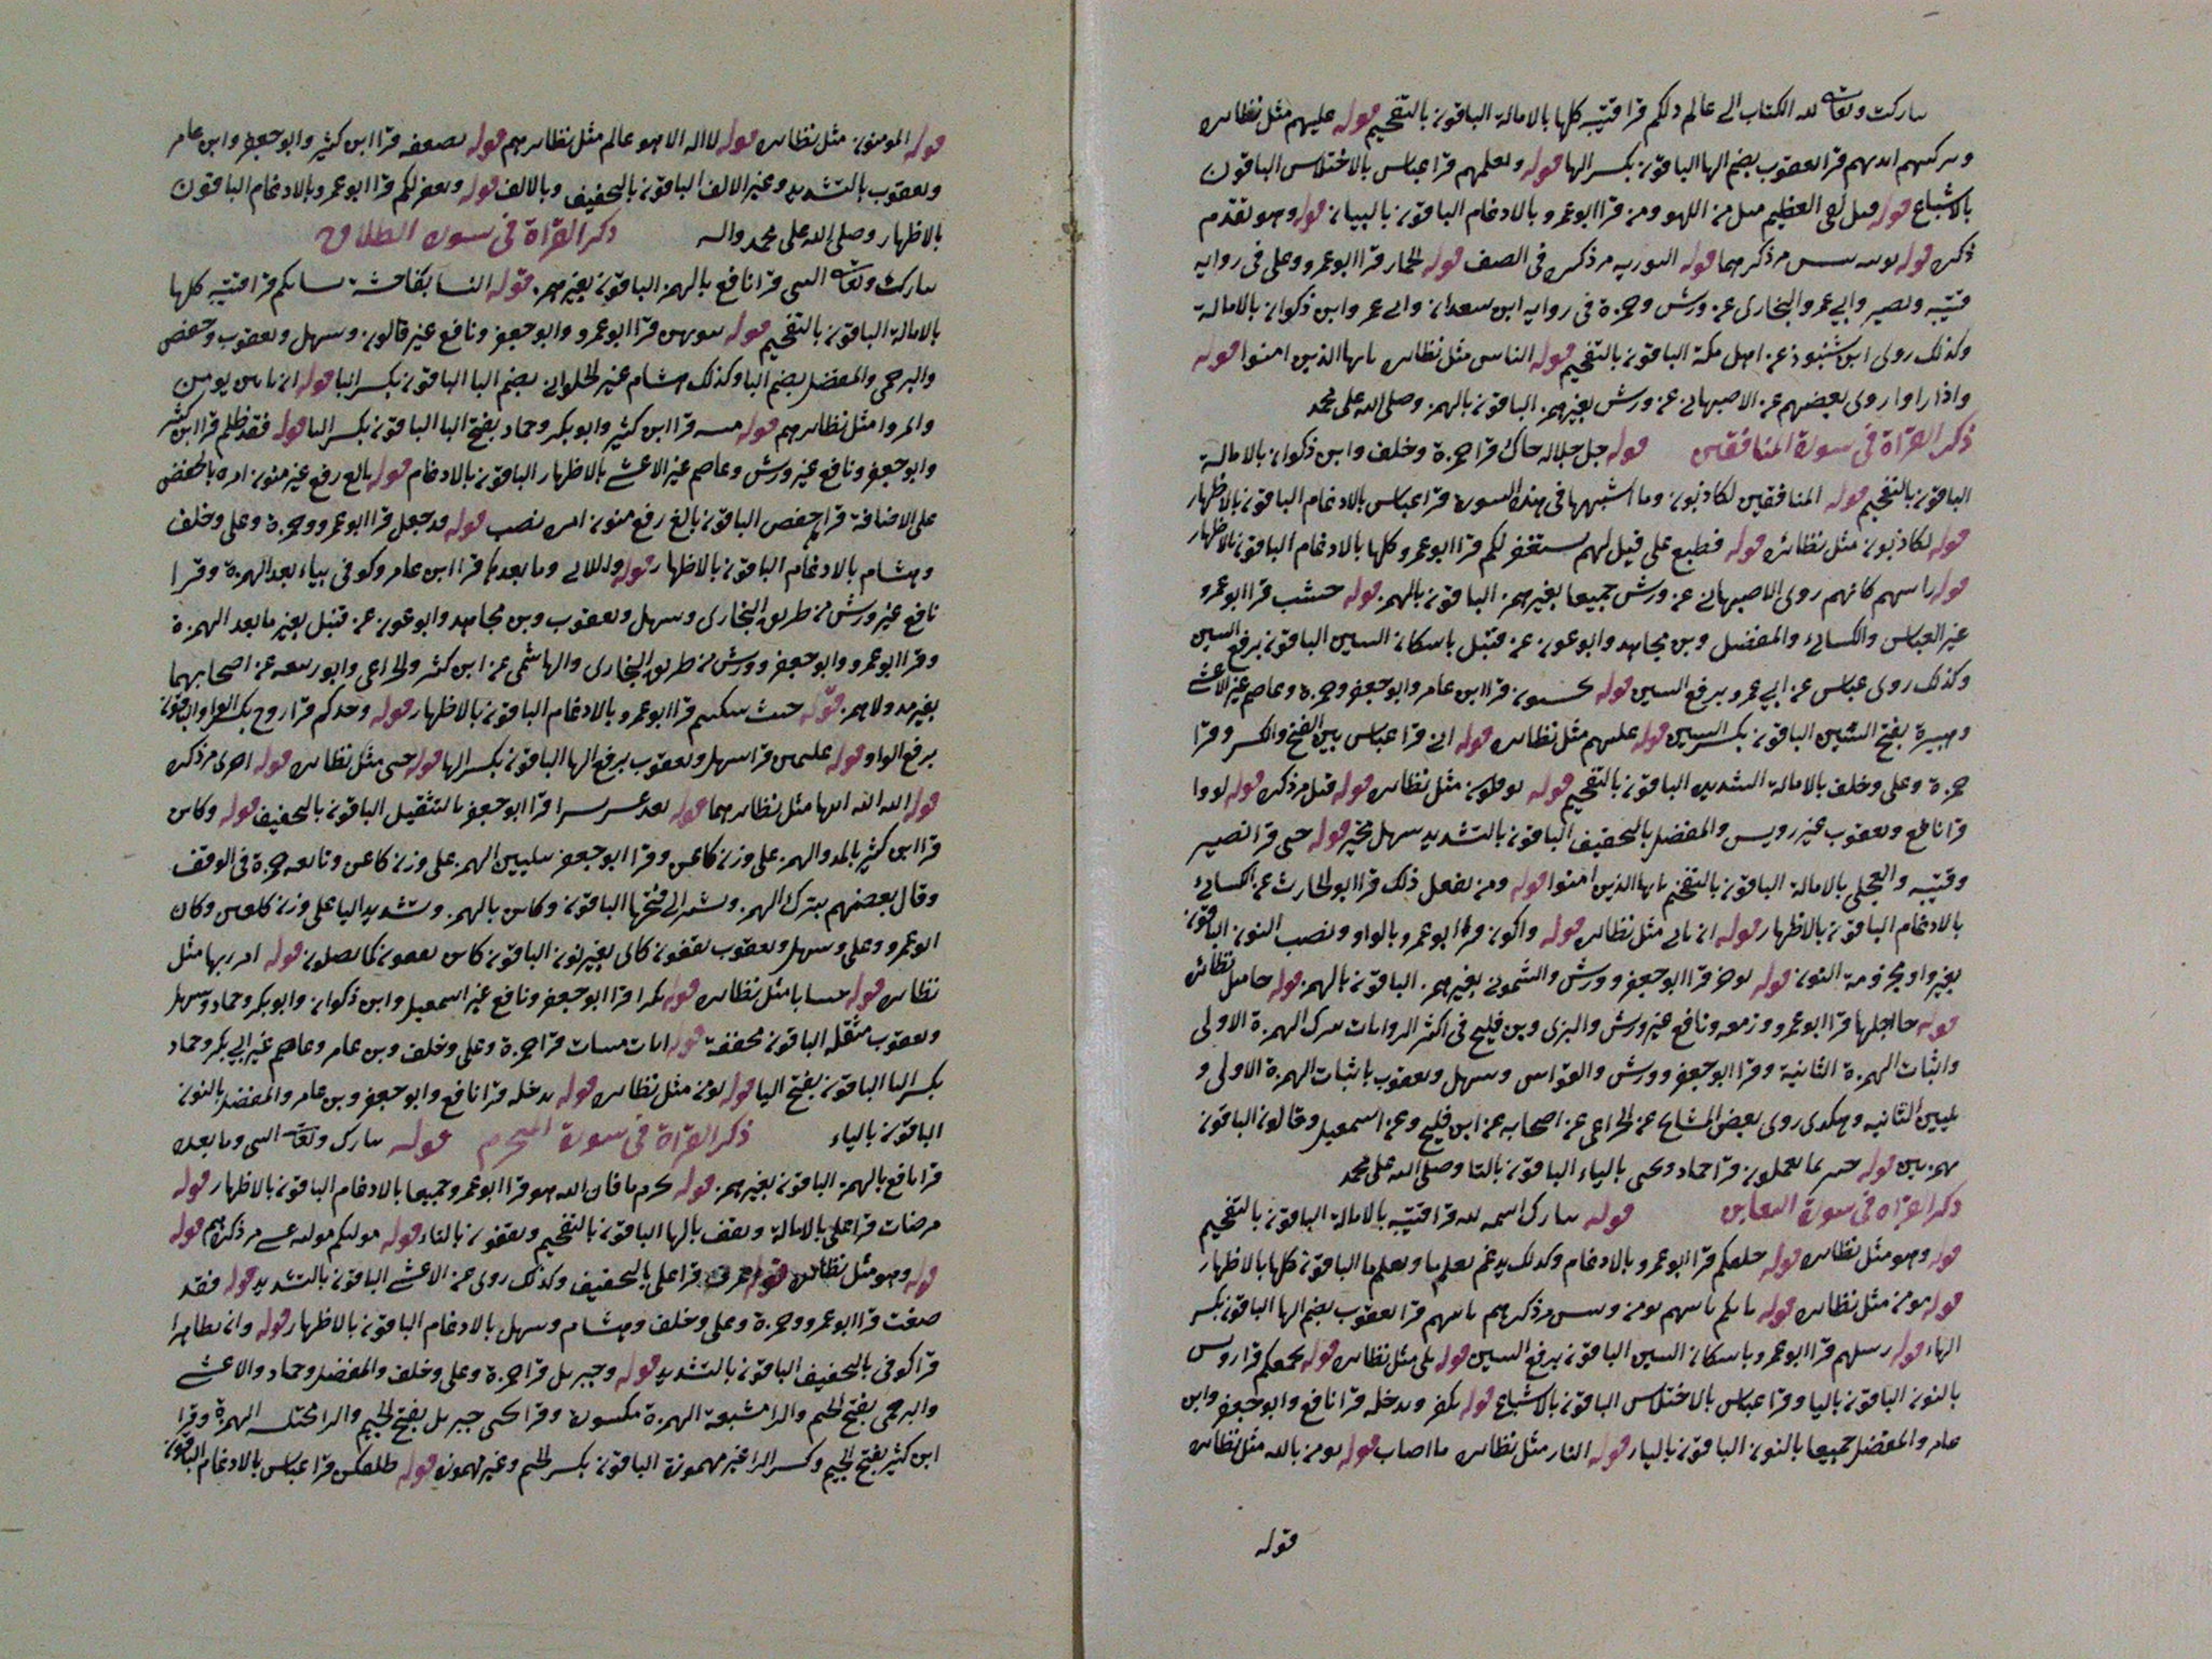 تباركت وتعالى لله الكتاب الى عالم ذلكم قرا قتيبة كلها بالامالة الباقون بالتفخيم قوله عليهم مثل نظائره
ويزكيهم ايديهم قرا يعقوب بضم الها الباقون بكسر الها قوله ويعلمهم قرا عباس بالاختلاس الباقون
بالاشباع قوله قبل لفى العظيم مثل من اللهو ومن قرا ابو عمرو بالادغام الباقون بالبيان قوله وهو تقدم
ذكره قوله مر ذكرهما قوله التوريه مر ذكره فى الصف قوله الحمار قرا ابو عمرو وعلى فى رواية
قتيبه ونصير وابى عمر والبخارى عن ورش وحمزة فى رواية ابن سعدان وابى عمر وابن ذكوان بالامالة
وكذلك روى ابن شنبوذ عن اهل مكة الباقون بالتفخيم قوله الناس مثل نظائره يايها الذين امنوا قوله
واذا راوا روى بعضهم عن الاصبهانى عن ورش بغير همز الباقون بالهمز وصلى الله على محمد
ذكر القراة فى سورة المنافقين قوله جل جلاله جاك قرا حمزة وخلف وابن ذكوان بالامالة
الباقون بالتفخيم قوله المنافقين لكاذبون وما اشبهها فى هذه السورة قرا عباس بالادغام الباقون بالاظهار
قوله لكاذبون مثل نظائره قوله فطبع على قيل لهم يستغفر لكم قرا ابو عمرو كلها بالادغام الباقون بالاظهار
قوله راسهم كانهم روى الاصبهانى عن ورش جميعا بغير همز الباقون بالهمز قوله خشب قرا ابو عمرو
غير العباس والكسائى والمفضل وبن مجاهد وابو عون عن قنبل باسكان السين الباقون برفع السين
وكذلك روى عباس عن ابى عمرو برفع السين قوله يحسبون قرا ابن عامر وابو جعفر وحمزة وعاصم غير الاعشى
وهبيرة بفتح السين الباقون بكسر السين قوله عليهم مثل نظائره قوله انى قرا عباس بين الفتح والكسر وقرا
حمزة وعلى وخلف بالامالة الشديده الباقون بالتفخيم قوله يوفكون مثل نظائره قوله قيل مر ذكره قوله لووا
قرا نافع ويعقوب غير رويس والمفضل بالتخفيف الباقون بالتشديد سهل مخير قوله حتى قرا نصير
وقتيبه والعجلى بالامالة الباقون بالتفخيم يايها الذين امنوا قوله ومن يفعل ذلك قرا ابو الحارث عن الكسائى
بالادغام الباقون بالاظهار قوله ان ياتى مثل نظائره قوله واكون قرا ابو عمرو بالواو ونصب النون الباقون
بغير واو مجزومة النون قوله يوخر قرا ابو جعفر وورش والشمونى بغير همز الباقون بالهمز قوله جا مثل نظائره
قوله جا اجلها قرا ابو عمرو وزمعه ونافع غير ورش والبزى وبن فليح فى اكثر الروايات بترك الهمزة الاولى
واثبات الهمزة الثانية وقرا ابو جعفر وورش والقواس وسهل ويعقوب باثبات الهمزة الاولى و
تليين الثانيه وهكذى روى بعض المشايخ عن الخزاعى عن اصحابه عن ابن فليح وعن اسمعيل وقالون الباقون
بهمزتين قوله خبير بما تعملون قرا حماد ويحيى بالياء الباقون بالتا وصلى الله على محمد
ذكر القراة فى سورة التغابن قوله تبارك اسمه له قرا قتيبه بالامالة الباقون بالتفخيم
قوله وهو مثل نظائره قوله خلقكم قرا ابو عمرو بالادغام وكذلك يدغم يعلم ما ويعلم ما الباقون كلها بالاظهار
قوله مومن مثل نظائره قوله ياتكم تاتيهم يومن وبيس مر ذكرهم تاتيهم قرا يعقوب بضم الها الباقون بكسر
الهاء قوله رسلهم قرا ابو عمرو باسكان السين الباقون برفع السين قوله بلى مثل نظائره قوله يجمعكم قرا رويس
بالنون الباقون باليا وقرا عباس بالاختلاس الباقون بالاشباع قوله يكفر ويدخله قرا نافع وابو جعفر وابن
عامر والمفضل جميعا بالنون الباقون بالياء قوله النار مثل نظائره ما اصاب قوله يومن بالله مثل نظائره
قوله
قوله المومنون مثل نظائره قوله لا اله الا هو عالم مثل نظائرهم قوله يضعفه قرا ابن كثير وابو جعفر وابن عامر
ويعقوب بالتشديد وغير الالف الباقون بالتخفيف وبالالف قوله ويغفر لكم قرا ابو عمرو بالادغام الباقون
بالاظهار وصلى الله على محمد واله ذكر القراة فى سورة الطلاق
تبارك وتعالى النبى قرا نافع بالهمز الباقون بغير همز قوله النسا بفاحشة نسايكم قرا قتيبه كلها
بالامالة الباقون بالتفخيم قوله بيوتهن قرا ابو عمرو وابو جعفر ونافع غير قالون وسهل ويعقوب وحفص
والبرجمى والمفضل بضم البا وكذلك هشام غير الحلوانى بضم البا الباقون بكسر البا قوله ان ياتين يومن
واتمروا مثل نظائرهم قوله مبينة قرا ابن كثير وابو بكر وحماد بفتح اليا الباقون بكسر اليا قوله فقد ظلم قرا ابن كثير
وابو جعفر ونافع غير ورش وعاصم غير الاعشى بالاظهار الباقون بالادغام قوله بالغ رفع غير منون امره بالخفض
على الاضافة قراه حفص الباقون بالغ رفع منون امره نصب قوله قد جعل قرا ابو عمرو وحمزة وعلى وخلف
وهشام بالادغام الباقون بالاظهار قوله واللائى وما بعده قرا ابن عامر وكوفى بياء بعد الهمزة وقرا
نافع غير ورش من طريق البخارى وسهل ويعقوب وبن مجاهد وابو عون عن قنبل بغير ما بعد الهمزة
وقرا ابو عمرو وابو جعفر وورش من طريق البخارى والهاشمى عن ابن كثير والخزاعى وابو ربيعه عن اصحابهما
بغير مد ولا همز قوله حيث سكنتم قرا ابو عمرو بالادغام الباقون بالاظهار قوله وجدكم قرا روح بكسر الواو الباقون
برفع الواو قوله عليهن قرا سهل ويعقوب برفع الها الباقون بكسر الها قوله حتى مثل نظائره قوله اخرى مر ذكره
قوله اتاه الله اتيها مثل نظائرهما قوله بعد عسر يسرا قرا ابو جعفر بالتثقيل الباقون بالتخفيف قوله وكاين
قرا ابن كثير بالمد والهمز على وزن كاعن وقرا ابو جعفر بتليين الهمز على وزن كاعن وتابعه حمزة فى الوقف
وقال بعضهم بترك الهمز ويشير الى فتحها الباقون وكاين بالهمز وتشديد اليا على وزن كلعين وكان
ابو عمرو وعلى وسهل ويعقوب يقفون كاى بغير نون الباقون كاين يقفون كما يصلون قوله امر ربها مثل
نظائره قوله حسابا مثل نظائره قوله نكرا قرا ابو جعفر ونافع غير اسمعيل وابن ذكوان وابو بكر وحماد وسهل
ويعقوب مثقله الباقون مخففة قوله ايات مبينات قرا حمزة وعلى وخلف وبن عامر وعاصم غير ابى بكر وحماد
بكسر اليا الباقون بفتح اليا قوله يومن مثل نظائره قوله يدخله قرا نافع وابو جعفر وبن عامر والمفضل بالنون
الباقون بالياء ذكر القراة فى سورة المحرم قوله تبارك وتعالى النبى وما بعده
قرا نافع بالهمز الباقون بغير همز قوله تحرم ما فان الله هو قرا ابو عمرو جميعا بالادغام الباقون بالاظهار قوله
مرضات قرا على بالامالة ويقف بالها الباقون بالتفخيم ويقفون بالتاء قوله موليكم موليه عسى مر ذكرهم قوله
قوله وهو مثل نظائره قوله عرف قرا على بالتخفيف وكذلك روى عن الاعشى الباقون بالتشديد قوله فقد
صغت قرا ابو عمرو وحمزة وعلى وخلف وهشام وسهل بالادغام الباقون بالاظهار قوله وان تظاهرا
قرا كوفى بالتخفيف الباقون بالتشديد قوله وجبريل قرا حمزة وعلى وخلف والمفضل وحماد والاعشى
والبرجمى بفتح الجيم والرا مشبعة الهمزة مكسورة وقرا يحيى جبرئل بفتح الجيم والرا مختلسة الهمزة وقرا
ابن كثير بفتح الجيم وكسر الرا غير مهموزة الباقون بكسر الجيم وغير مهموزة قوله طلقكن قرا عباس بالادغام الباقون